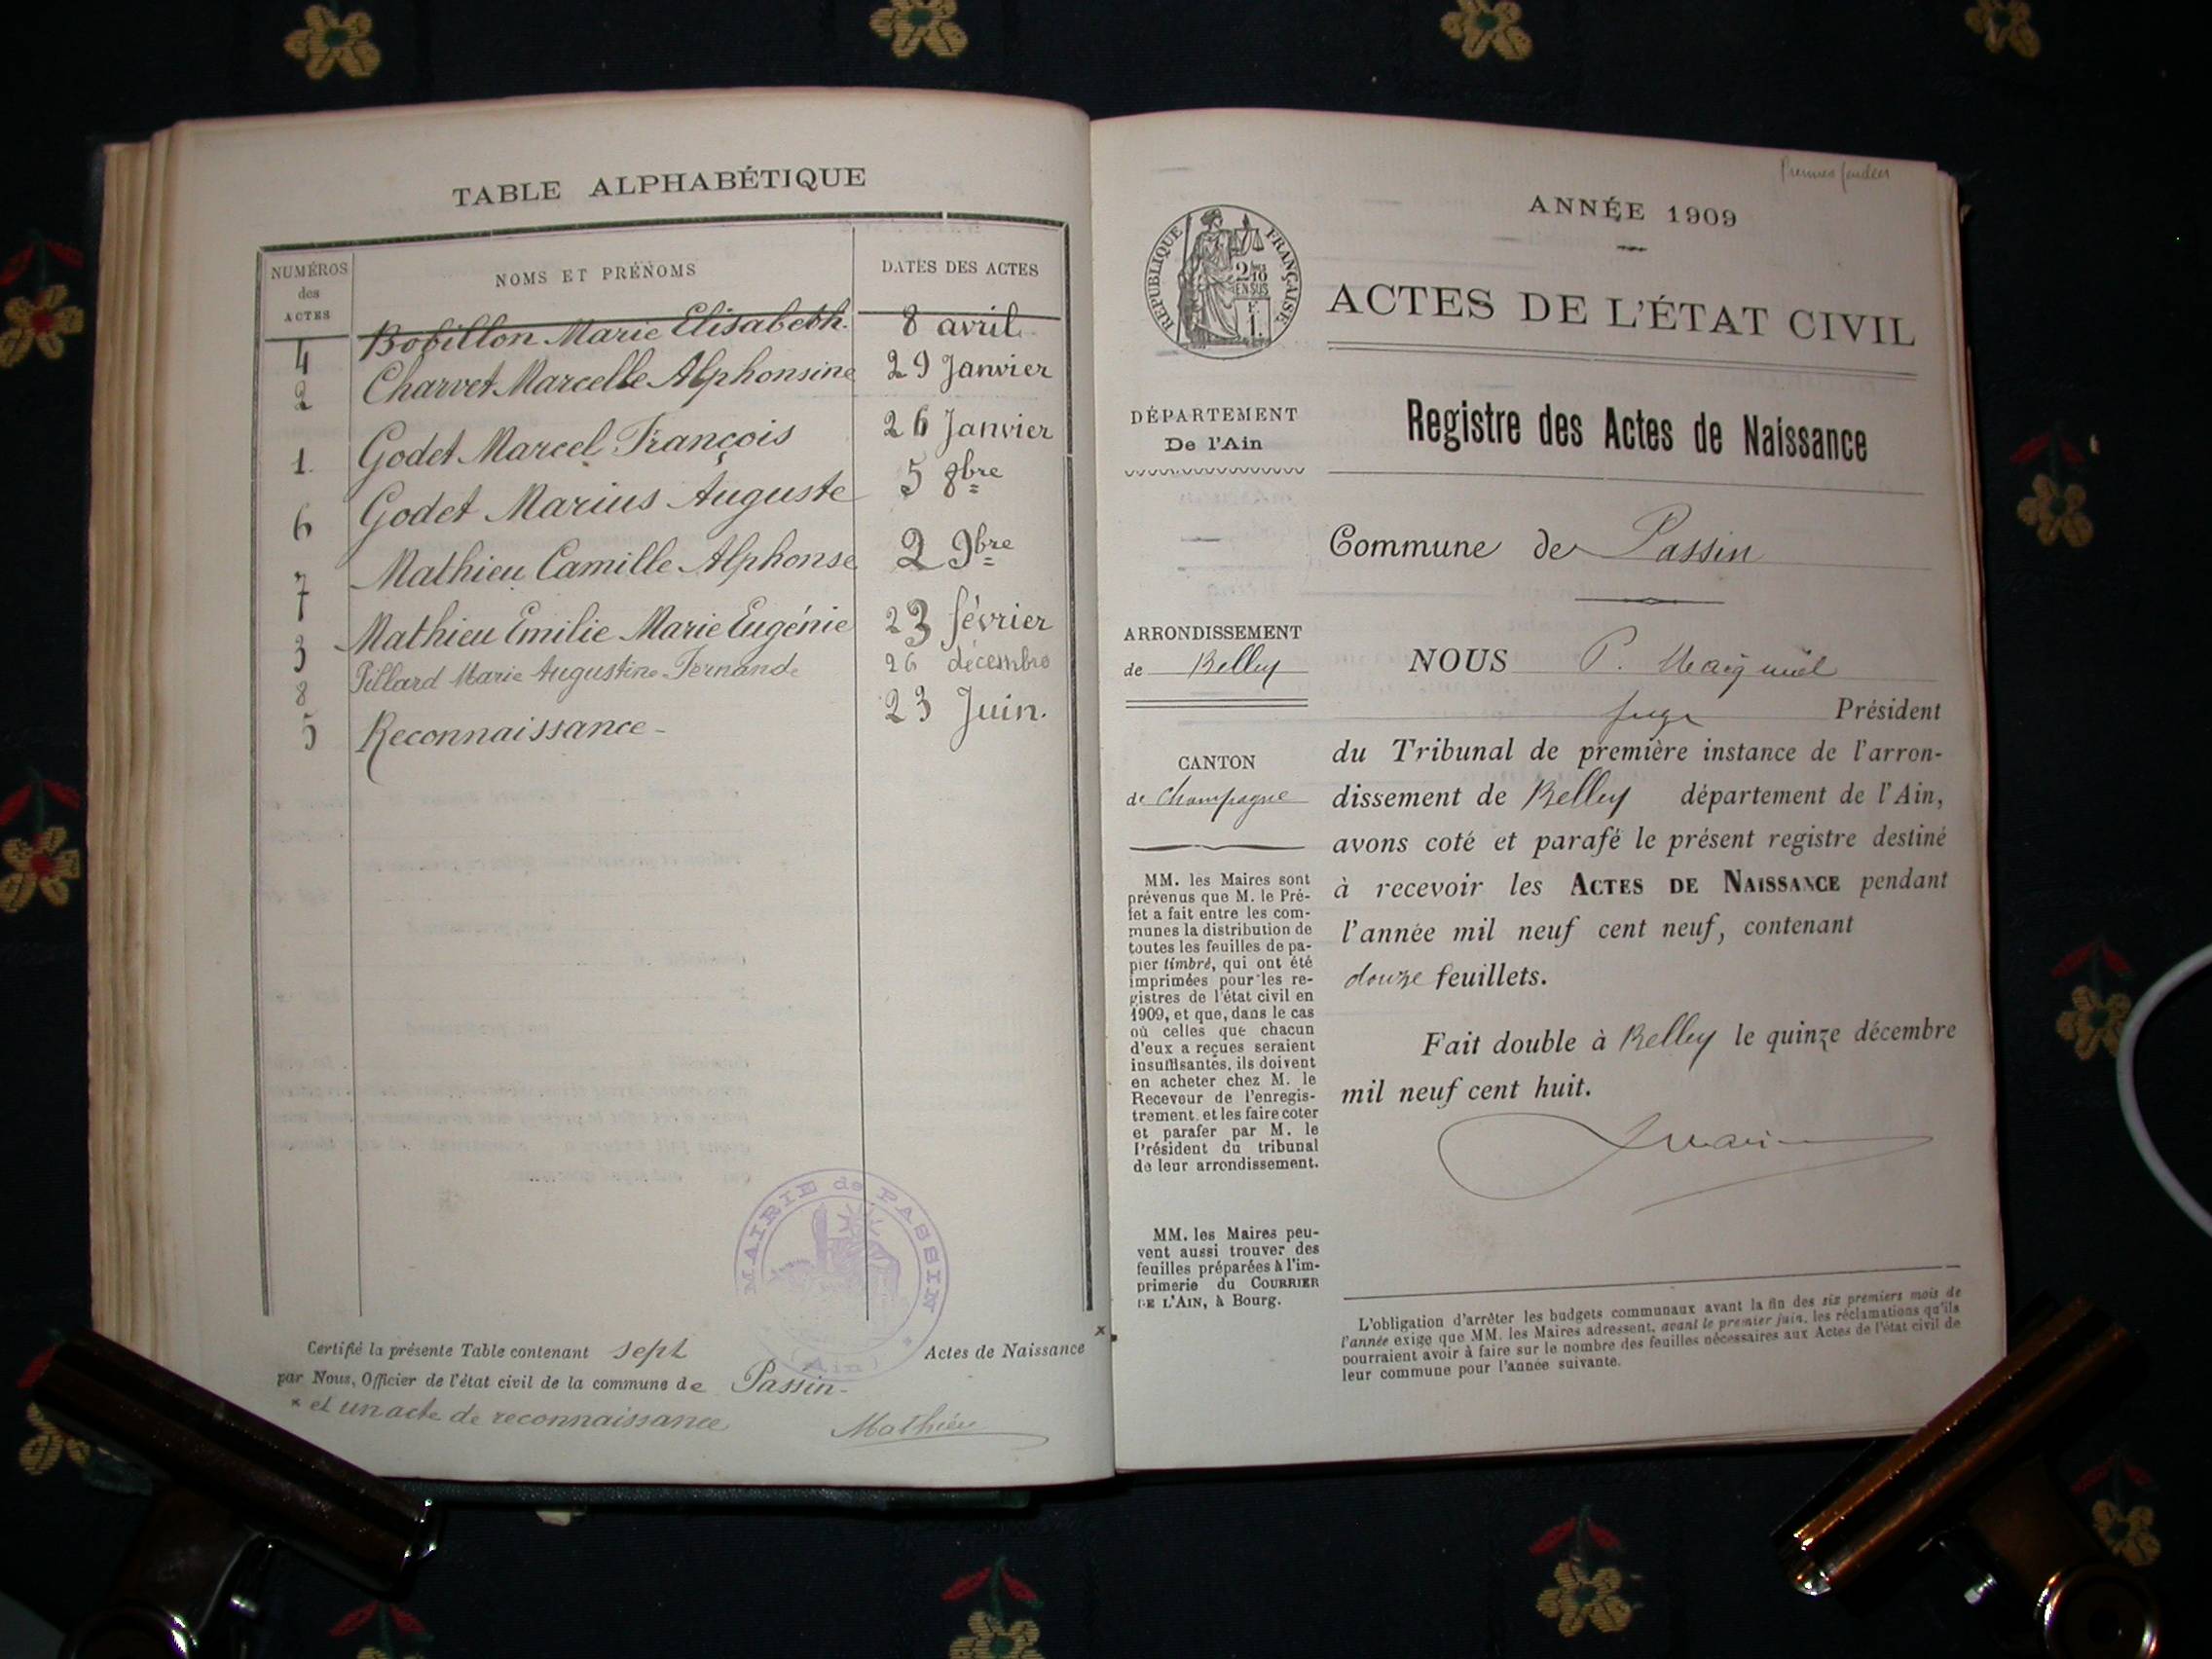 TABLE ALPHABÉTIQUE
NUMÉROS des ACTES
NOMS ET PRÉNOMS
DATES DES ACTES
4 Bobillon Marie Elisabeth. 8 avril
2 Charvet Marcelle Alphonsine 29 Janvier
1. Godet Marcel François 26 Janvier
6 Godet Marius Auguste 5 8bre
7 Mathieu Camille Alphonse 2 9bre
3 Mathieu Emilie Marie Eugénie 23 février
8 Pillard Marie Augustine Fernande 26 décembre
5 Reconnaissance - 23 Juin.
MAIRIE de PASSIN
(Ain)
Certifié la présente Table contenant sept Actes de Naissance ×
par Nous, Officier de l'état civil de la commune de Passin-
× et un acte de reconnaissance
Mathieu
ANNÉE 1909
RÉPUBLIQUE FRANÇAISE
2/10
EN SUS
F
1.
ACTES DE L'ÉTAT CIVIL
DÉPARTEMENT
De l'Ain
Registre des Actes de Naissance
Commune de Passin
ARRONDISSEMENT
de Belley
CANTON
de Champagne
MM. les Maires sont
prévenus que M. le Pré-
fet a fait entre les com-
munes la distribution de
toutes les feuilles de pa-
pier timbré, qui ont été
imprimées pour les re-
gistres de l'état civil en
1909, et que, dans le cas
où celles que chacun
d'eux a reçues seraient
insuffisantes, ils doivent
en acheter chez M. le
Receveur de l'enregis-
trement, et les faire coter
et parafer par M. le
Président du tribunal
de leur arrondissement.
MM. les Maires peu-
vent aussi trouver des
feuilles préparées à l'im-
primerie du COURRIER
DE L'AIN, à Bourg.
NOUS P.
juge Président
du Tribunal de première instance de l'arron-
dissement de Belley département de l'Ain,
avons coté et parafé le présent registre destiné
à recevoir les ACTES DE NAISSANCE pendant
l'année mil neuf cent neuf, contenant
douze feuillets.
Fait double à Belley le quinze décembre
mil neuf cent huit.
L'obligation d'arrêter les budgets communaux avant la fin des six premiers mois de
l'année exige que MM. les Maires adressent, avant le premier juin, les réclamations qu'ils
pourraient avoir à faire sur le nombre des feuilles nécessaires aux Actes de l'état civil de
leur commune pour l'année suivante.